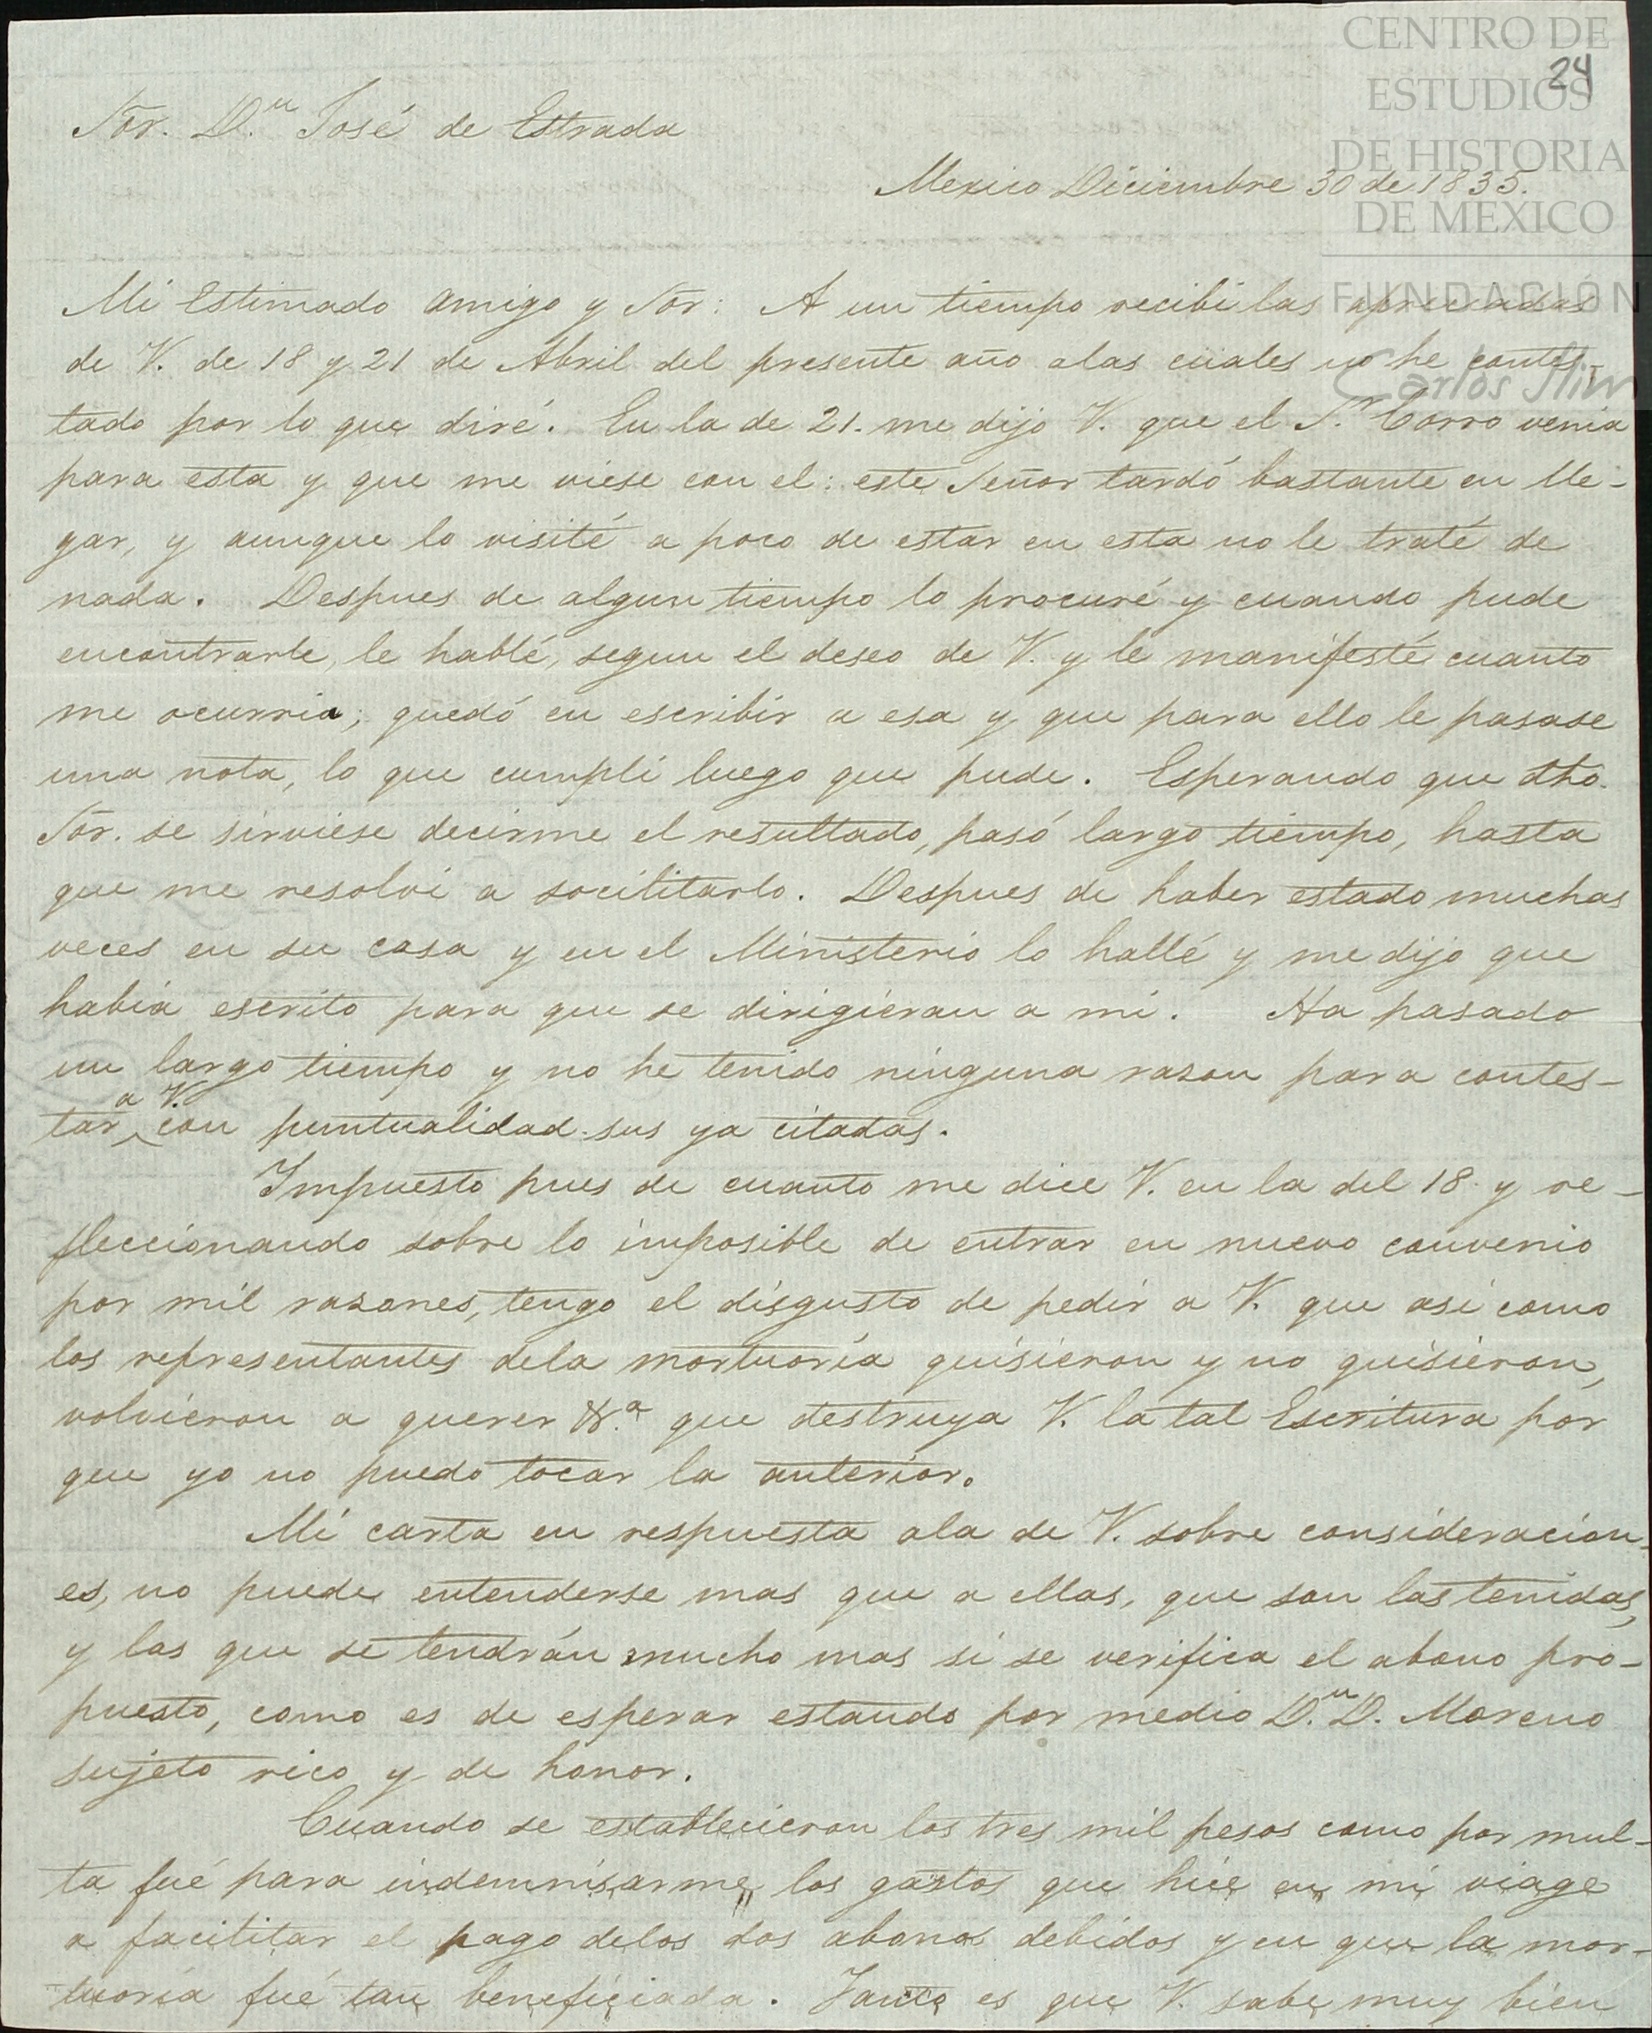 CENTRO DE
ESTUDIOS
24
DE HISTORIA
DE MEXICO
FUNDACIÓN
Carlos Slim
Sor. D.n José de Estrada
Mexico Diciembre 30 de 1835.
Mi Estimado amigo y Sor: A un tiempo recibi las apreciadas
de V. de 18 y 21 de Abril del presente año alas cuales no he contes-
tado por lo que diré. En la de 21. me dijo V. que el S.r Corro venia
para esta y que me viese con el: este Señor tardó bastante en lle-
gar, y aunque lo visité a poco de estar en esta no le traté de
nada. Despues de algun tiempo lo procuré y cuando pude
encontrarle, le hablé, segun el deseo de V. y le manifesté cuanto
me ocurria; quedó en escribir a esa y que para ello le pasase
una nota, lo que cumpli luego que pude. Esperando que dho.
Sor. se sirviese decirme el resultado, pasó largo tiempo, hasta
que me resolvi a socilitarlo. Despues de haber estado muchas
veces en su casa y en el Ministerio lo hallé y me dijo que
habia escrito para que se dirigieran a mi. Ha pasado
un largo tiempo y no he tenido ninguna razon para contes-
tar a V. con puntualidad sus ya citadas.
Impuesto pues de cuanto me dice V. en la del 18. y re-
fleccionando sobre lo imposible de entrar en nuevo convenio
por mil razones, tengo el disgusto de pedir a V. que asi como
los representantes dela mortuoria quisieron y no quisieron,
volvieron a querer &.a que destruya V. la tal Escritura por
que yo no puedo tocar la anterior.
Mi carta en respuesta ala de V. sobre consideracion-
es, no puede entenderse mas que a ellas, que son las tenidas,
y las que se tendrán mucho mas si se verifica el abono pro-
puesto, como es de esperar estando por medio D.n D. Moreno
sujeto rico y de honor.
Cuando se establecieron los tres mil pesos como por mul-
ta fué para indemnisarme los gastos que hice en mi viage
a facilitar el pago delos dos abonos debidos y en que la mor-
tuoria fué tan beneficiada. Tanto es que V. sabe muy bien